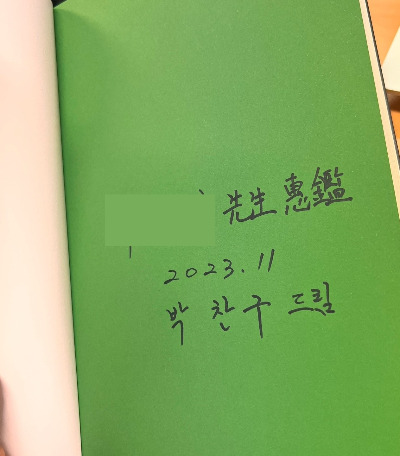 先生 惠鑑
2023.11
박찬구 드림